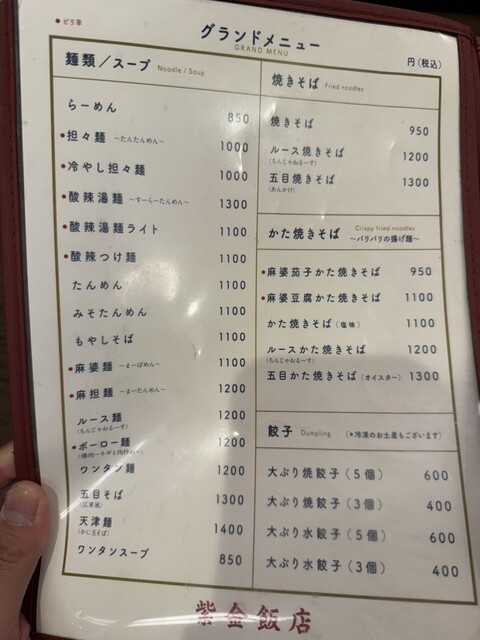 ●ピリ辛
グランドメニュー
GRAND MENU
円（税込）
麺類／スープ Noodle / Soup
らーめん 850
●担々麺 〜たんたんめん〜 1000
●冷やし担々麺 1000
●酸辣湯麺 〜すーらーたんめん〜 1300
●酸辣湯麺ライト 1100
●酸辣つけ麺 1100
たんめん 1100
みそたんめん 1100
もやしそば 1100
●麻婆麺 〜まーぼめん〜 1100
●麻担麺 〜まーたんめん〜 1200
ルース麺 1200
（ちんじゃおるーす）
●ボーロー麺 1200
ワンタン麺 1200
五目そば 1300
（広東風）
天津麺 1400
（かに玉そば）
ワンタンスープ 850
焼きそば Fried noodles
焼きそば 950
ルース焼きそば 1200
（ちんじゃおるーす）
五目焼きそば 1300
（あんかけ）
かた焼きそば Crispy fried noodles
〜パリパリの揚げ麺〜
●麻婆茄子かた焼きそば 950
●麻婆豆腐かた焼きそば 1100
かた焼きそば（塩味） 1100
ルースかた焼きそば 1200
（ちんじゃおるーす）
五目かた焼きそば（オイスター） 1300
餃子 Dumpling （●冷凍のお土産もございます）
大ぶり焼餃子（5個） 600
大ぶり焼餃子（3個） 400
大ぶり水餃子（5個） 600
大ぶり水餃子（3個） 400
紫金飯店